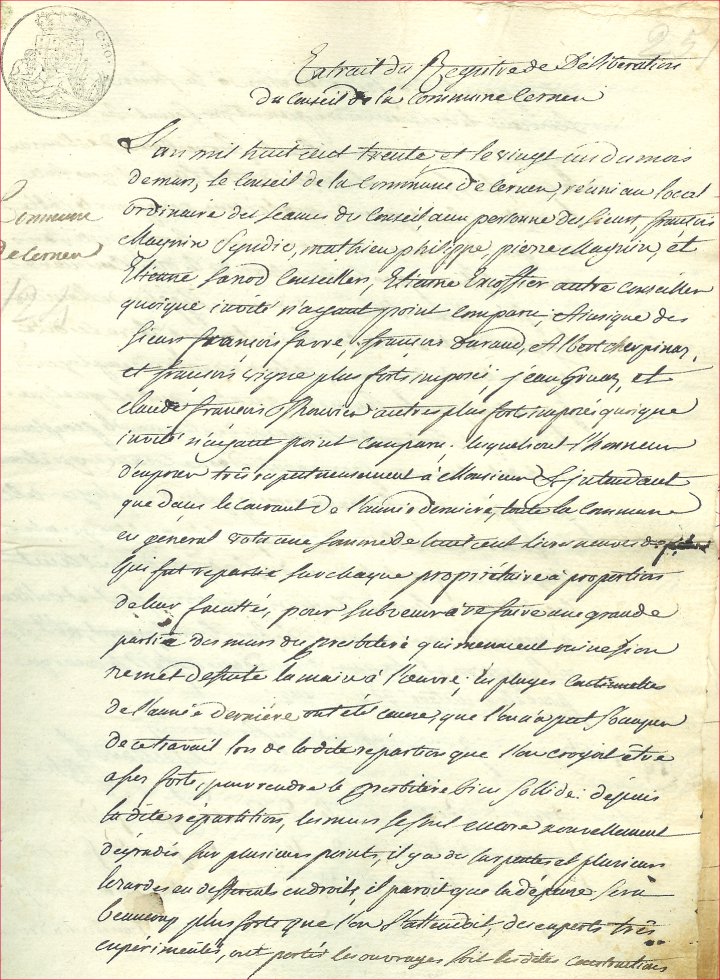 251
Extrait du Registre de Déliberation
du Conseil de la Commune Cernex
Commune
de Cernex
L'an mil huit cent trente et le vingt un du mois
de mars, le Conseil de la Commune de Cernex, réuni au local
ordinaire des seances du Conseil, aux personne des sieurs françois
Magnin Syndic, mathieu philippe, pierre Magnin, et
Etienne Conseillers, Etienne autre conseiller
quoique invité n'ayant point comparu, Ainsique des
sieurs françois favre, françois durand, Albert
et françois vigne plus forts imposé jean et
claude françois Bouvier autres plus forts imposés quoique
invité n'ayant point comparu. lesquels ont l'honneur
d'exposer très respectueusement à Monsieur L'jntendant
que dans le courant de l'année dernière, toute la Commune
en général vota une somme de huit cent livres neuves
qui fut repartie sur chaque propriétaire à proportion
de leur facultés, pour subvenir à refaire une grande
partie des murs du presbitère qui menacent ruine si on
ne met desuite la main à l'œuvre; les pluyes continuelles
de l'année dernière ont été cause, que l'on n'a put s'occuper
de ce travail lors de la dite répartion que l'on croyoit être
assez forte, pour rendre le presbitère bien sollide: depuis
la dite répartition, les murs se sont encore nouvellement
dégradés sur plusieurs points, il y a de et plusieurs
lezardes en differents endroits, il paroit que la dépense sera
beaucoup plus forte que l'on s'attendoit, des experts très
expérimentés, ont portés les ouvrages soit les dites constructions